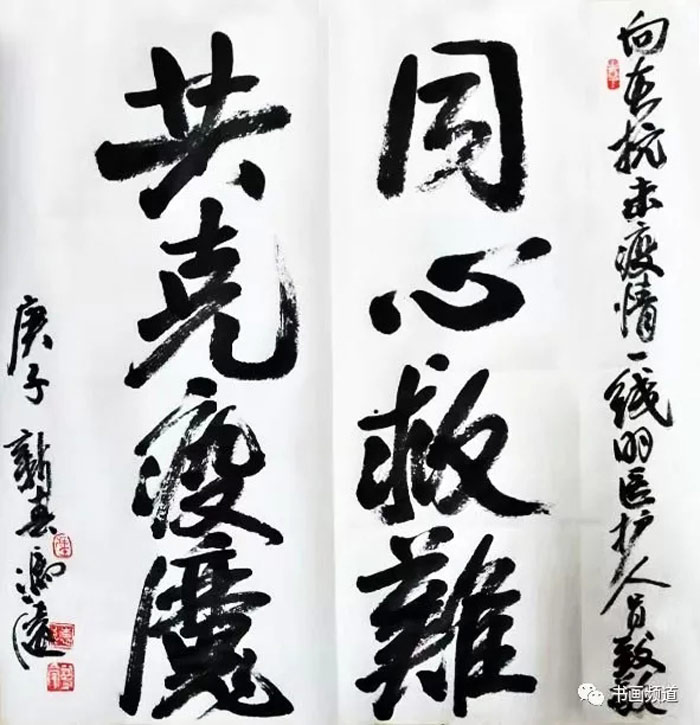 向在抗击疫情一线的医护人员致敬
同心救難
共克疫魔
庚子新春冯远
书画频道